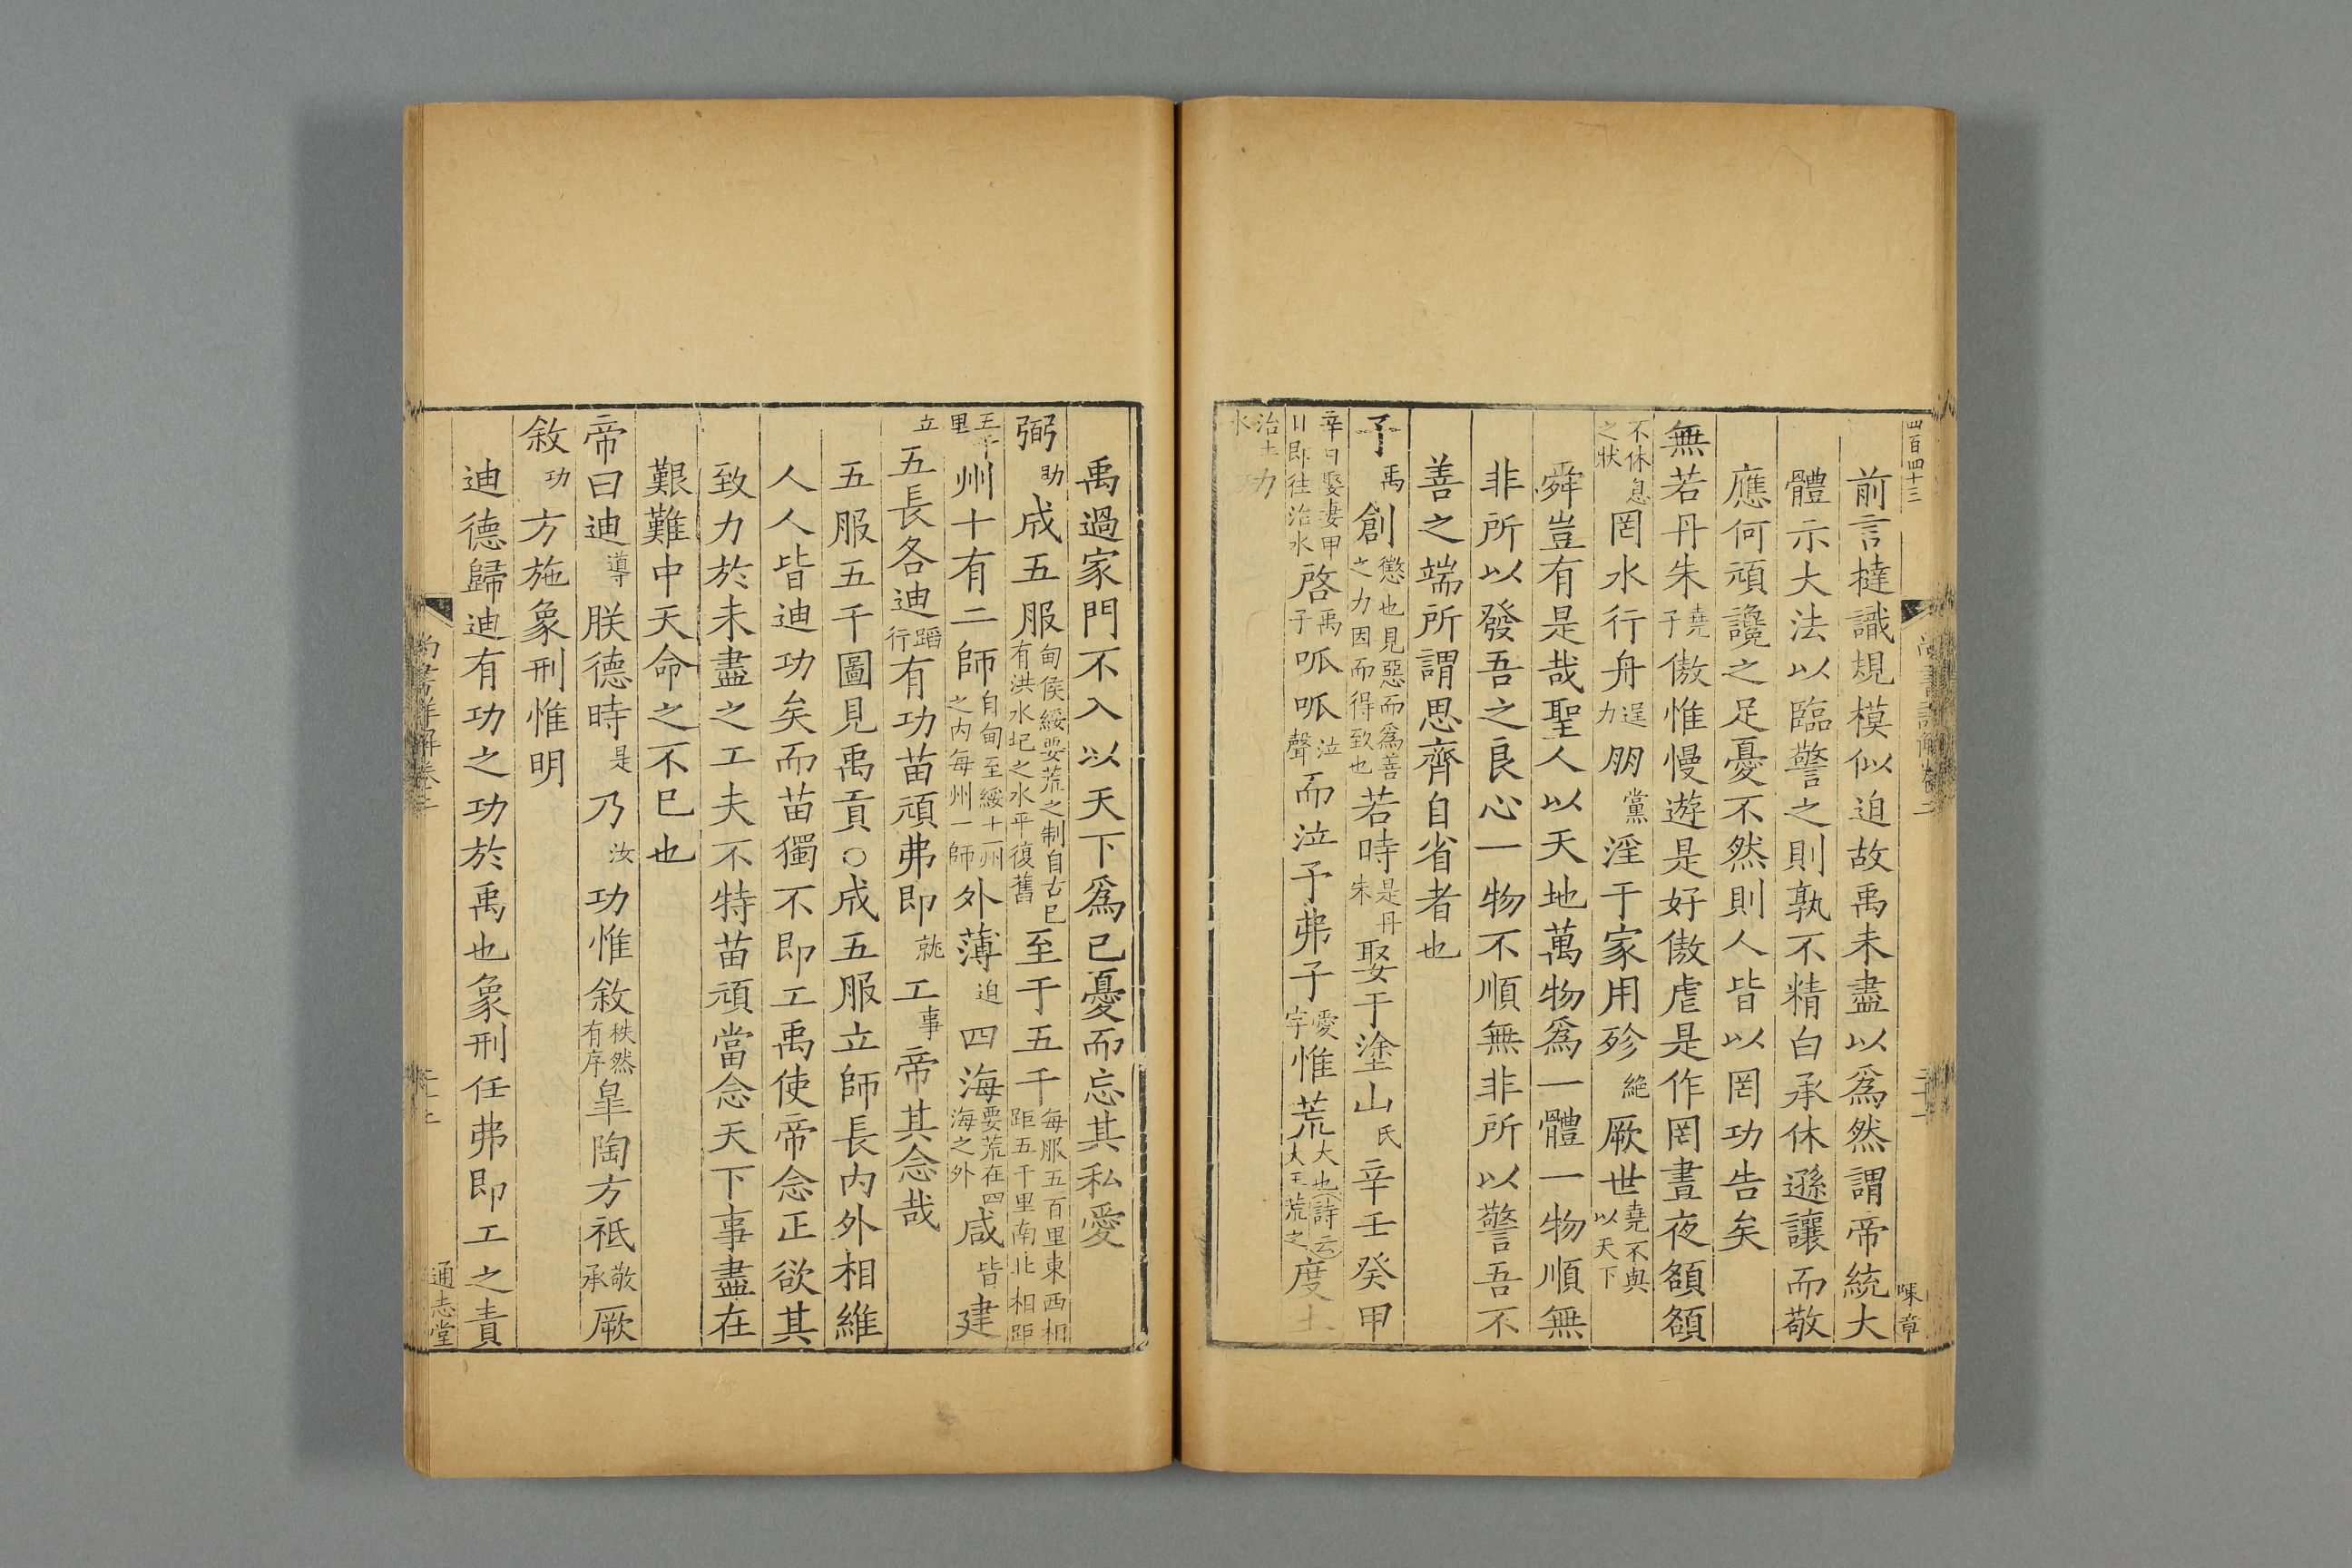 四百四十三
陳章
前言撻識規模似迫故禹未盡以爲然謂帝統大
體示大法以臨警之則孰不精白承休遜讓而敬
應何頑讒之足憂不然則人皆以罔功告矣
無若丹朱堯子傲惟慢遊是好傲虐是作罔晝夜頟頟
不休息之狀罔水行舟逞力朋黨淫于家用殄絶厥世堯不與以天下
舜豈有是哉聖人以天地萬物爲一體一物順無
非所以發吾之良心一物不順無非所以警吾不
善之端所謂思齊自省者也
予禹創懲也見惡而爲善之力因而得致也若時是丹朱娶于塗山氏辛壬癸甲
辛日娶妻甲日即往治水啓禹子呱呱泣聲而泣予弗子愛字惟荒大也詩云大王荒之度土
治土水功
禹過家門不入以天下爲已憂而忘其私愛
弼助成五服甸侯綏要荒之制自古已有洪水圮之水平復舊至于五千每服五百里東西相距五千里南北相距
五千里州十有二師自甸至綏十二州之内每州一師外薄迫四海要荒在四海之外咸皆建
立五長各迪蹈行有功苗頑弗即就工事帝其念哉
五服五千圖見禹貢○成五服立師長内外相維
人人皆迪功矣而苗獨不即工禹使帝念正欲其
致力於未盡之工夫不特苗頑當念天下事盡在
艱難中天命之不已也
帝曰迪導朕德時是乃汝功惟敘秩然有序皐陶方祗敬承厥
敘功方施象刑惟明
迪德歸迪有功之功於禹也象刑任弗即工之責
尚書詳解卷三
通志堂